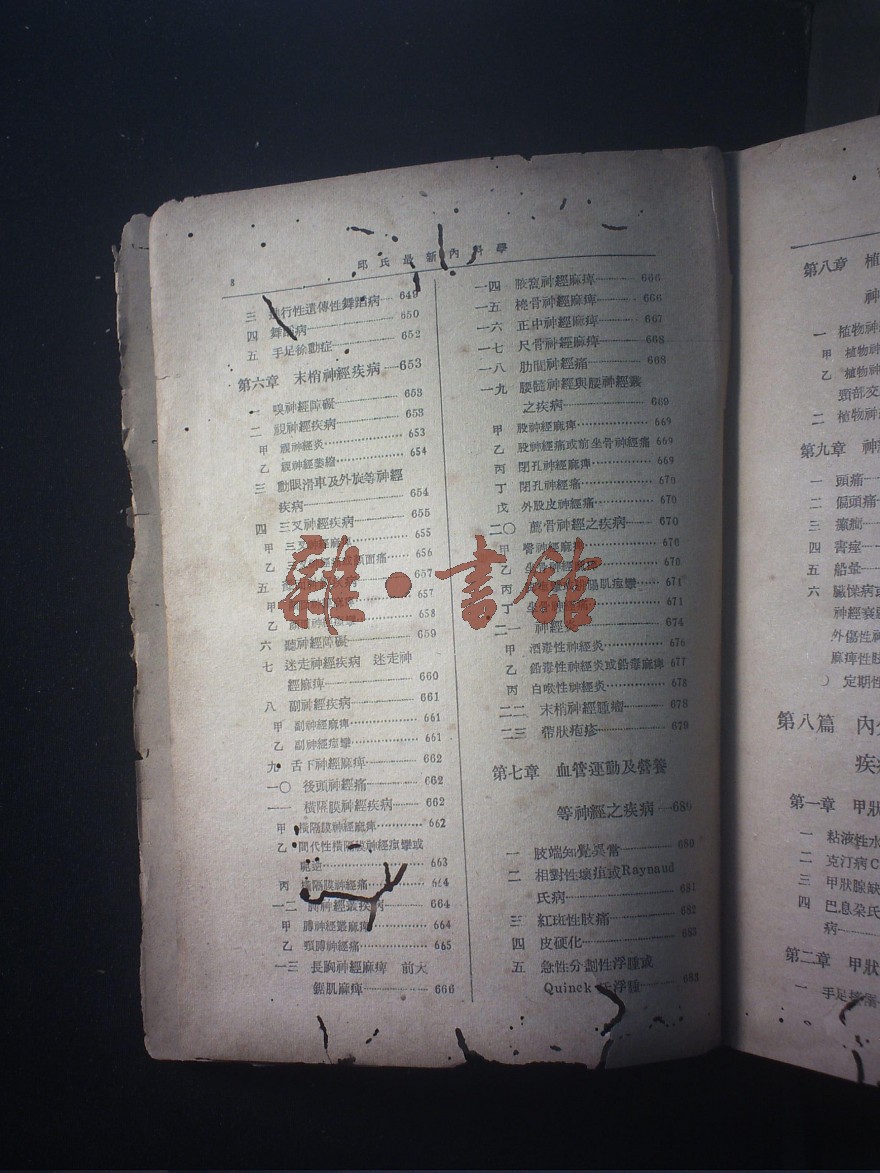 8
邱氏最新內科學
三 行性遺傳性舞蹈病 649
四 舞蹈病 650
五 手足徐動症 652
第六章 末梢神經疾病 653
一 嗅神經障礙 653
二 視神經疾病 653
甲 視神經炎 653
乙 視神經萎縮 654
三 動眼滑車及外旋等神經
疾病 654
四 三叉神經疾病 655
甲 三叉神經麻 655
乙 面痛 656
五 657
甲 657
乙 658
六 聽神經障礙 659
七 迷走神經疾病 迷走神
經麻痺 660
八 副神經疾病 661
甲 副神經麻痺 661
乙 副神經痙攣 661
九 舌下神經麻痺 662
一〇 後頭神經痛 662
一一 橫隔膜神經疾病 662
甲 橫隔膜神經麻痺 662
乙 間代性橫隔膜神經痙攣或
663
丙 橫隔膜神經痛 664
一二 神經叢疾病 664
甲 膊神經叢麻痺 664
乙 頸膊神經痛 665
一三 長胸神經麻痺 前大
鋸肌麻痺 666
一四 腋窩神經麻痺 666
一五 橈骨神經麻痺 666
一六 正中神經麻痺 667
一七 尺骨神經麻痺 668
一八 肋間神經痛 668
一九 腰髓神經與腰神經叢
之疾病 669
甲 股神經麻痺 669
乙 股神經痛或前坐骨神經痛 669
丙 閉孔神經麻痺 669
丁 閉孔神經痛 670
戊 外股皮神經痛 670
二〇 薦骨神經之疾病 670
甲 臀神經麻 670
乙 坐骨神經麻痺 670
丙 腸肌痙攣 671
丁 坐骨神經痛 671
二一 神經炎 674
甲 酒毒性神經炎 676
乙 鉛毒性神經炎或鉛毒麻痺 677
丙 白喉性神經炎 678
二二 末梢神經腫瘤 678
二三 帶狀疱疹 679
第七章 血管運動及營養
等神經之疾病 680
一 肢端知覺異常 680
二 相對性壞疽或Raynaud
氏病 681
三 紅斑性肢痛 682
四 皮硬化 683
五 急性分劃性浮腫或
Quinck 氏浮腫 683
第八章 植
神
一 植物神
甲 植物神
乙 植物神
頸部交
二 植物神
第九章 神
一 頭痛
二 偏頭痛
三 癲癇
四 
五 船暈
六 臟悸病或
神經衰
外傷性神
麻痺性
) 定期性
第八篇 內分
疾
第一章 甲狀
一 粘液性水
二 克汀病C
三 甲狀腺缺
四 巴息朶氏
病
第二章 甲狀
一 手足搐
雜·書館